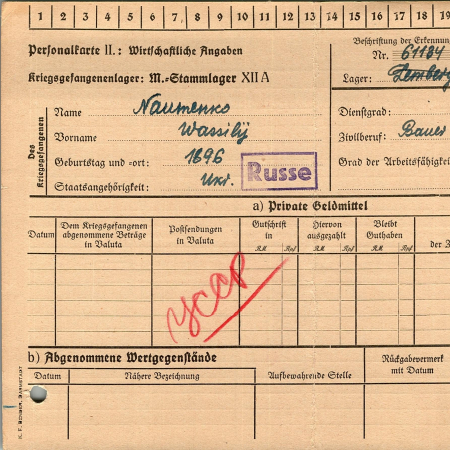 1 2 3 4 5 6 7 8 9 10 11 12 13 14 15 16 17 18 19
Personalkarte II.: Wirtschaftliche Angaben
Kriegsgefangenenlager: M.-Stammlager XII A
Beschriftung der Erkennun
Nr. 61184
Lager: Lemberg
Des Kriegsgefangenen
Name Naumenko
Vorname Wassilij
Geburtstag und -ort: 1896
Staatsangehörigkeit: Ukr.
Russe
Dienstgrad:
Zivilberuf: Bauer
Grad der Arbeitsfähigkeit
a) Private Geldmittel
Datum
Dem Kriegsgefangenen abgenommene Beträge in Valuta
Postsendungen in Valuta
Gutschrift in
RM Rpf
Hiervon ausgezahlt
RM Rpf
Bleibt Guthaben
RM Rpf
der Z
УССР
b) Abgenommene Wertgegenstände
Datum
Nähere Bezeichnung
Aufbewahrende Stelle
Rückgabevermerk mit Datum